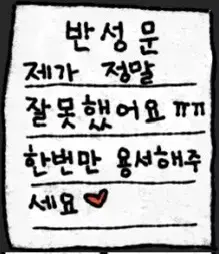 반성문
제가 정말
잘못했어요 ㅠㅠ
한번만 용서해주
세요 ♥